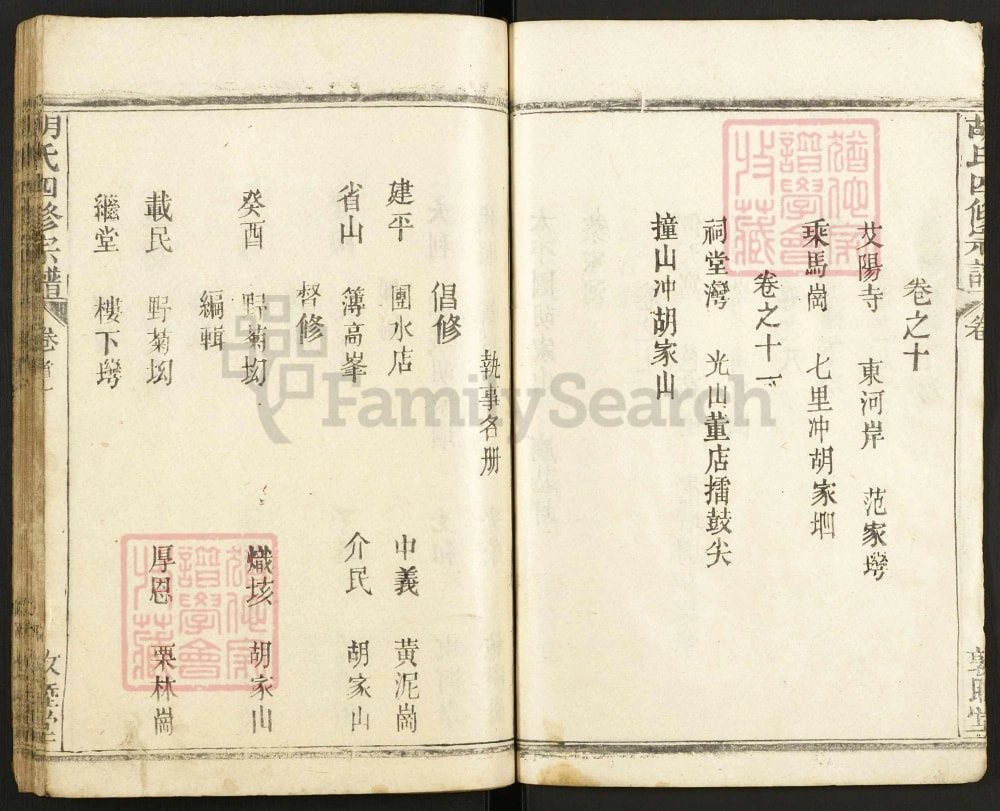 胡氏四修宗譜
卷
敦睦堂
卷之十
艾陽寺 東河岸 范家塆
乘馬崗 七里冲胡家垇
卷之十一
祠堂灣 光山董店擂鼓尖
撞山冲胡家山
執事名册
倡修
建平 團水店 中義 黄泥崗
省山 簿高峯 介民 胡家山
督修
癸酉 野菊㘭 熾垓 胡家山
編輯
載民 野菊㘭 厚恩 栗林崗
繼堂 樓下塆
胡氏四修宗譜
卷首
FamilySearch